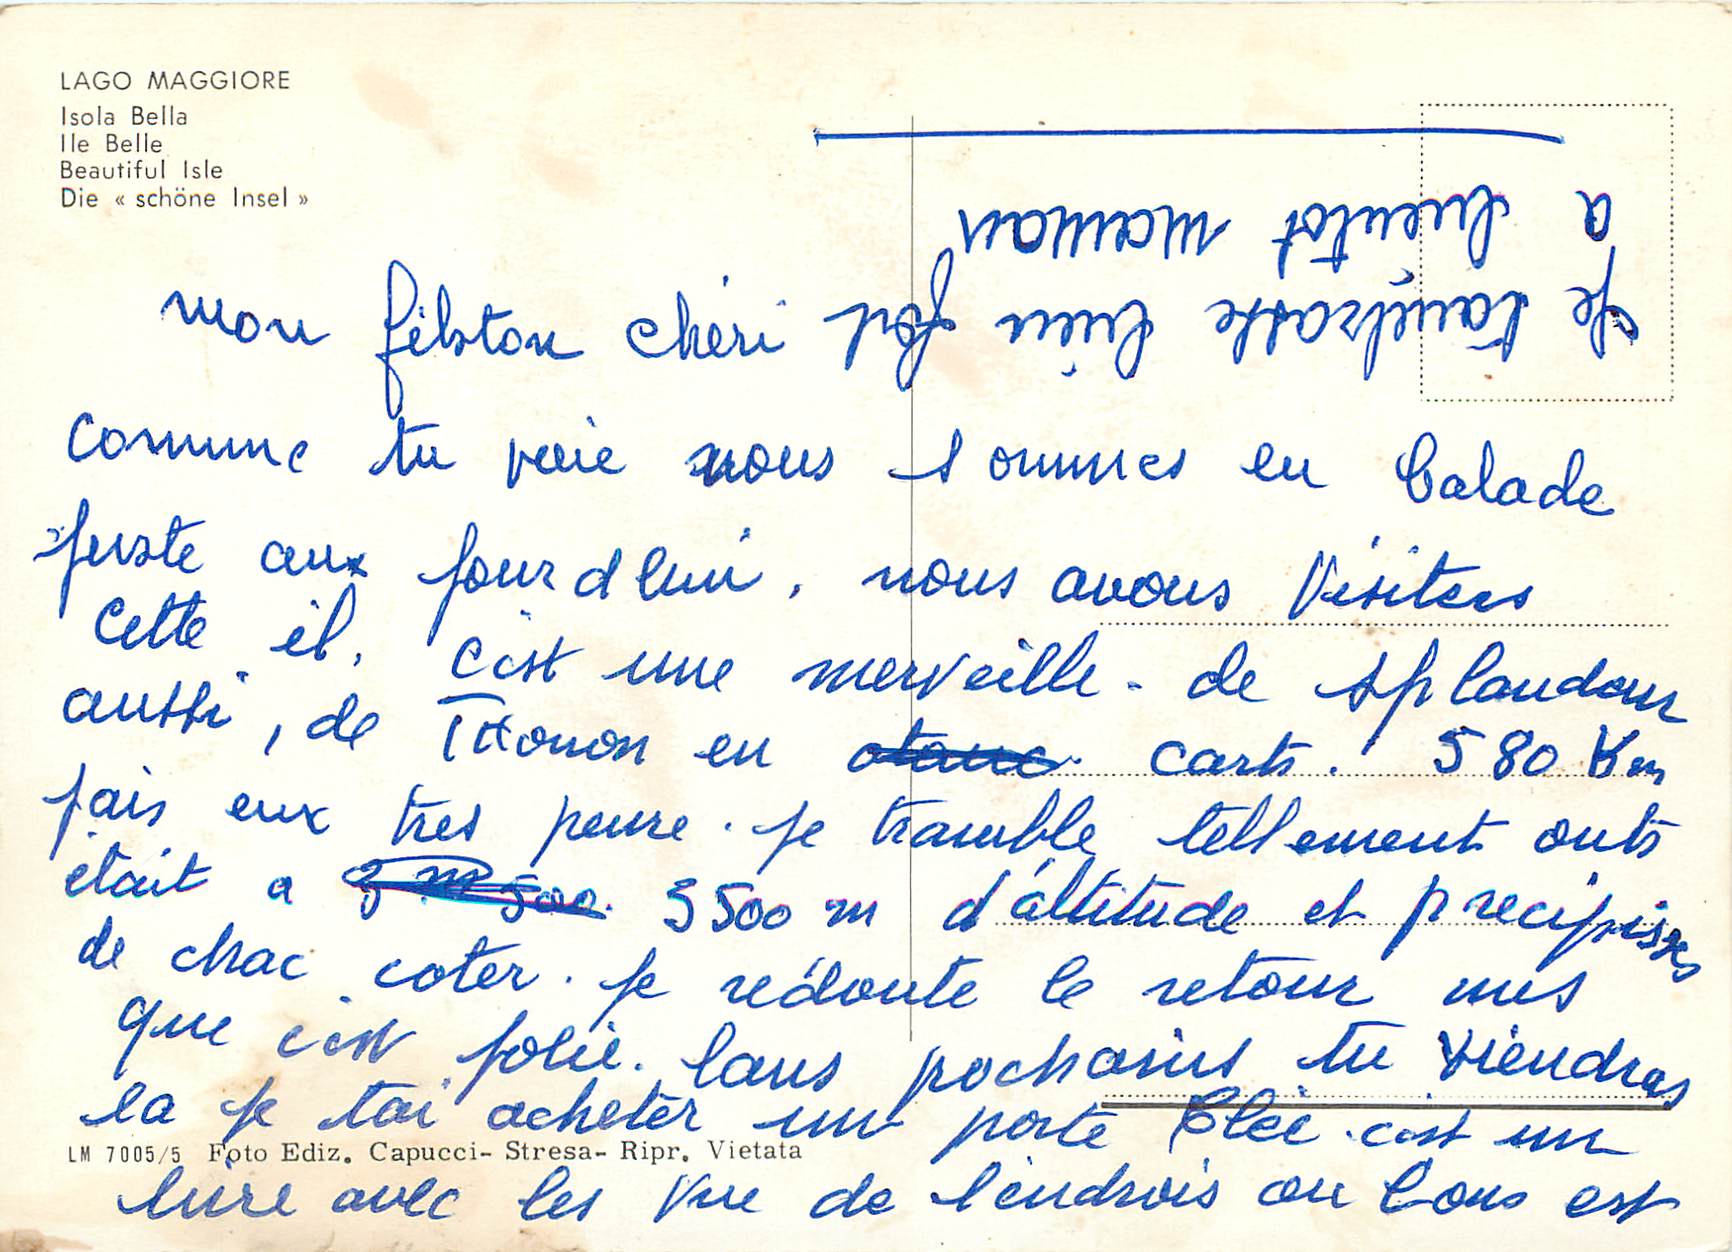 LAGO MAGGIORE
Isola Bella
Ile Belle
Beautiful Isle
Die « schöne Insel »
mon filston chéri
comme tu voie nous sommes en balade
juste aux jourdhui. nous avons visiters
cette il, c'est une merveille. de splandeur
aussi, de Thonon en carts. 580 Km
jais eux tres peure. je tramble tellement onts
était a 3500 m d'áltitude et precipisses
de chac coter. je redoute le retour mes
que c'est jolie. lans pochains tu viendras
la je tai acheter un porte clée. c'est un
LM 7005/5 Foto Ediz. Capucci- Stresa- Ripr. Vietata
livre avec les vue de l'endrois ou lons est
Je t'embrasse bien fort
a bientot maman